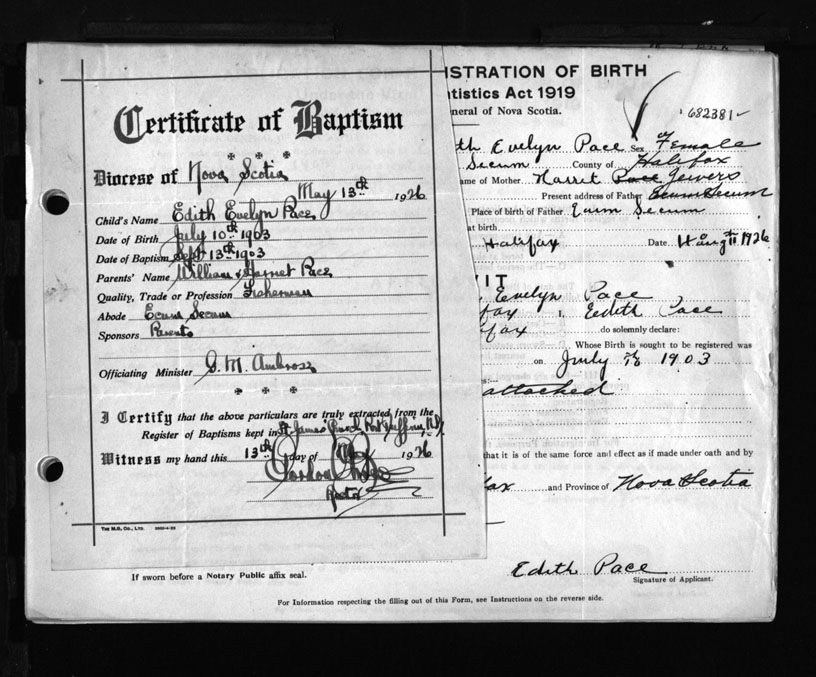 Certificate of Baptism
Diocese of Nova Scotia
May 13th 1926
Child's Name Edith Evelyn Pace
Date of Birth July 10th 1903
Date of Baptism Sept 13th 1903
Parents' Name William & Harriet Pace
Quality, Trade or Profession Fisherman
Abode Ecum Secum
Sponsors Parents
Officiating Minister G. M. Ambrose
I Certify that the above particulars are truly extracted from the
Register of Baptisms kept in St. James Port Dufferin, N.S.
Witness my hand this 13th day of May 1926
Rector
The M.B. Co., Ltd.
ISTRATION OF BIRTH
atistics Act 1919
eneral of Nova Scotia.
682381
th Evelyn Pace Sex Female
Secum County of Halifax
ame of Mother Harriet Pace
Present address of Father Ecum Secum
Place of birth of Father Ecum Secum
at birth
Halifax Date 1926
VIT
Evelyn Pace
fax I, Edith Pace
fax do solemnly declare:
Whose Birth is sought to be registered was
on July 10 1903
attached
that it is of the same force and effect as if made under oath and by
fax and Province of Nova Scotia
Edith Pace
Signature of Applicant.
If sworn before a Notary Public affix seal.
For Information respecting the filling out of this Form, see Instructions on the reverse side.